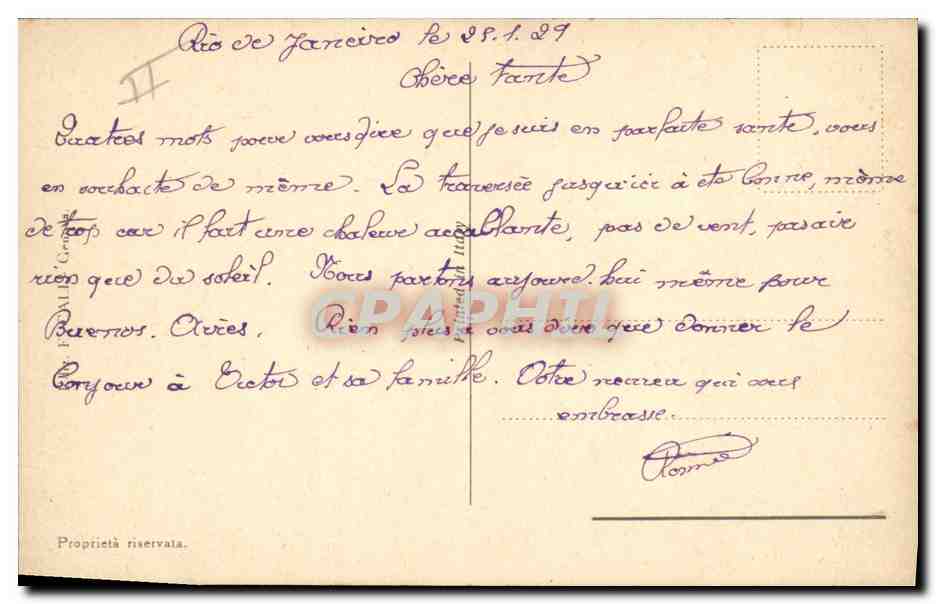 Rio de Janeiro le 25.1.29
II
Chère Tante
Quatres mots pour vous dire que je suis en parfaite sante, vous
en souhaite de même. La traversée jusqu'ici à éte bonne, même
de trop car il fait une chaleur accablante, pas de vent, pas air
rien que du soleil. Nous partons aujourd'hui même pour
Buenos-Aires. Rien plus a vous dire que donner le
bonjour à Victor et sa famille. Votre neuveu qui vous
embrasse.
Printed in Italy
GRAPHTL
Proprietà riservata.